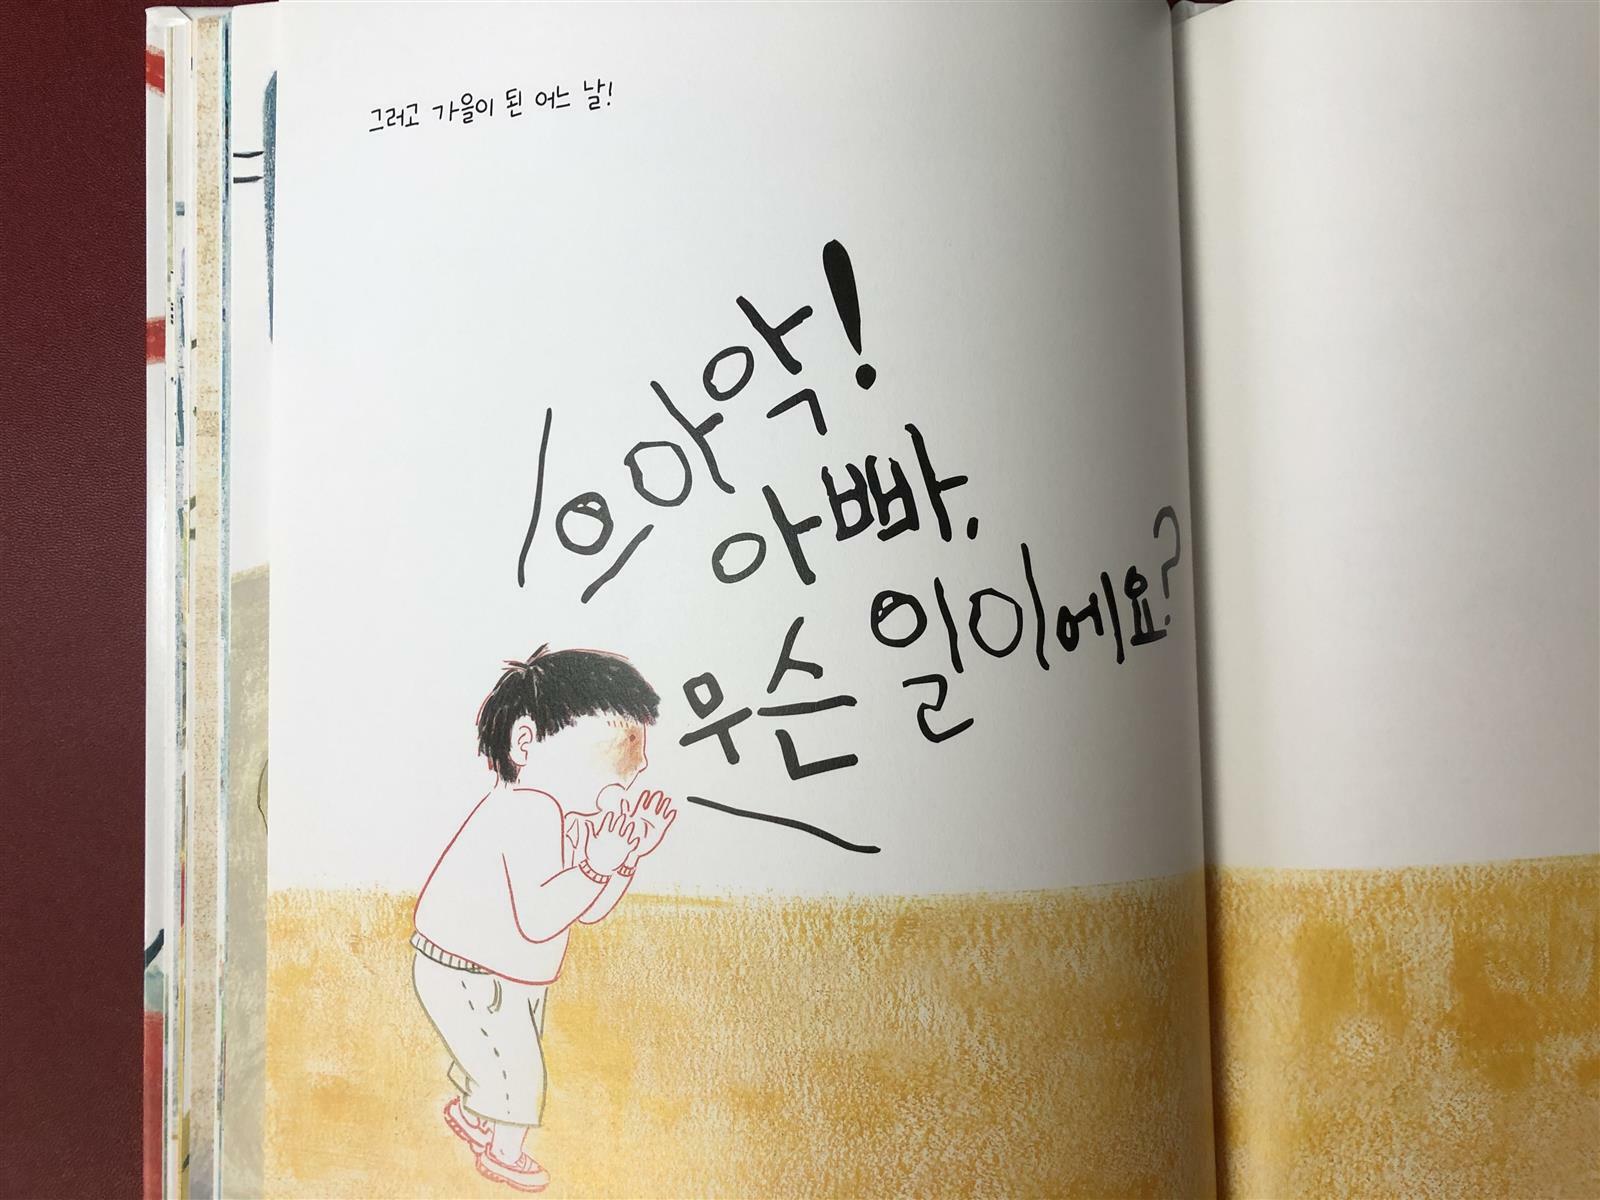 그러고 가을이 된 어느 날!
으아악!
아빠,
무슨 일이에요?